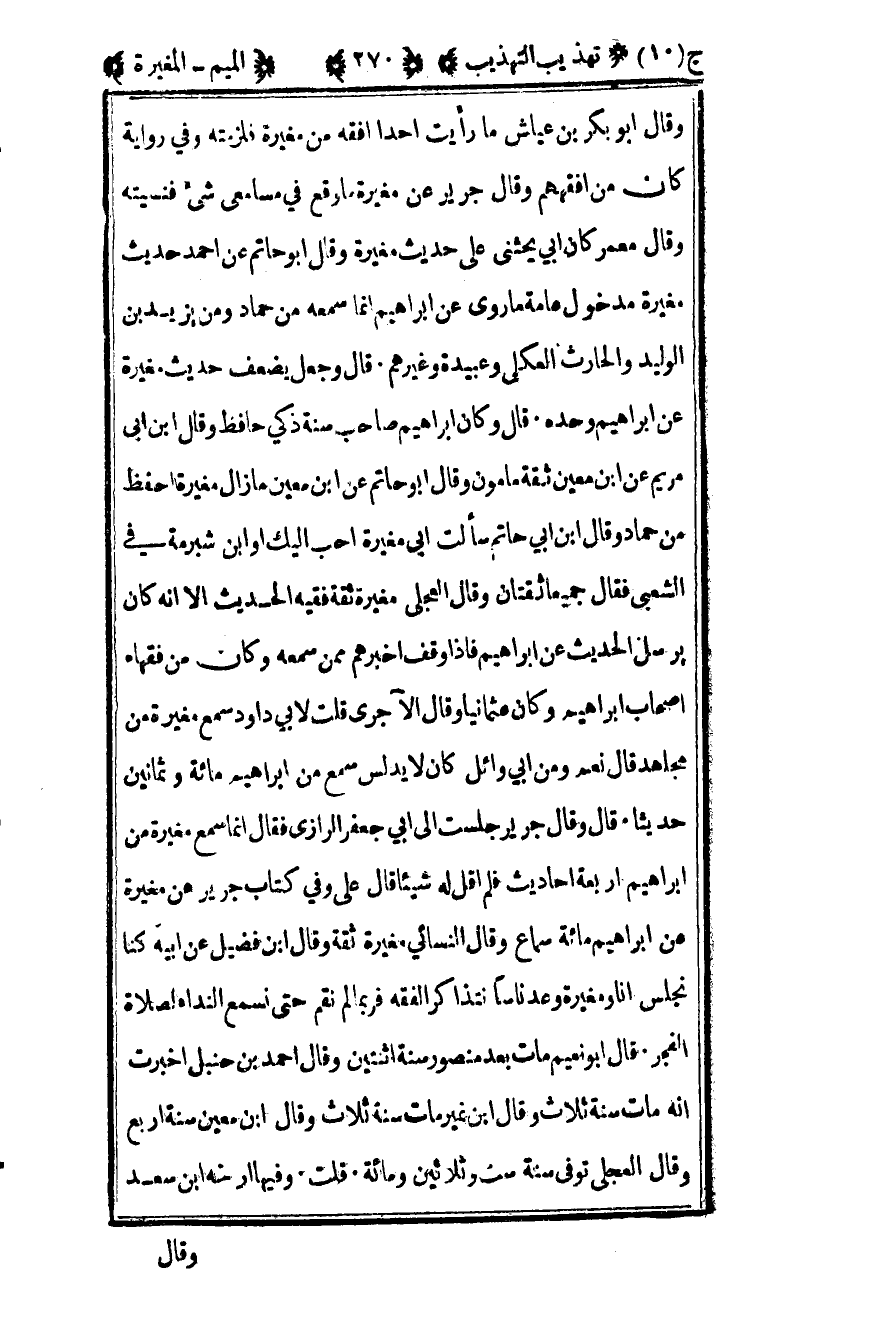 ج (١٠) * تهذيب التهذيب ٢٧٠ الميم ـ المغيرة
وقال ابو بكر بن عياش ما رأيت احدا افقه من مغيرة فلزمته وفي رواية
كان من افقههم وقال جرير عن مغيرة ما وقع في مسامعى شئ فنسيته
وقال معمر كان ابي يحثنى على حديث مغيرة وقال ابو حاتم عن احمد حديث
مغيرة مدخول عامة ما روى عن ابراهيم انما سمعه من حماد ومن يزيد بن
الوليد والحارث العكلي وعبيدة وغيرهم · قال وجعل يضعف حديث مغيرة
عن ابراهيم وحده · قال وكان ابراهيم صاحب سنة ذكي حافظ وقال ابن ابى
مريم عن ابن معين ثقة مامون وقال ابو حاتم عن ابن معين مازال مغيرة احفظ
من حماد وقال ابن ابي حاتم سألت ابي مغيرة احب اليك او ابن شبرمة في
الشعبى فقال جميعا ثقتان وقال العجلى مغيرة ثقة فقيه الحديث الا انه كان
يرسل الحديث عن ابراهيم فاذا وقف اخبرهم ممن سمعه وكان من فقهاء
اصحاب ابراهيم وكان عثمانيا وقال الآجرى قلت لابي داود سمع مغيرة من
مجاهد قال نعم ومن ابي وائل كان لا يدلس سمع من ابراهيم مائة و ثمانين
حديثا · قال وقال جرير جلست الى ابي جعفر الرازى فقال انما سمع مغيرة من
ابراهيم اربعة احاديث فلم اقل له شيئا قال على وفي كتاب جرير عن مغيرة
عن ابراهيم مائة سماع وقال النسائي مغيرة ثقة وقال ابن فضيل عن ابيه كنا
نجلس انا ومغيرة وعد ناسا نتذاكر الفقه فربما لم نقم حتى نسمع النداء لصلاة
الفجر · قال ابو نعيم مات بعد منصور سنة اثنتين وقال احمد بن حنبل اخبرت
انه مات سنة ثلاث وقال ابن نمير مات سنة ثلاث وقال ابن معين سنة اربع
وقال العجلى توفى سنة ست وثلاثين ومائة · قلت · وفيها ارخه ابن سعد
وقال